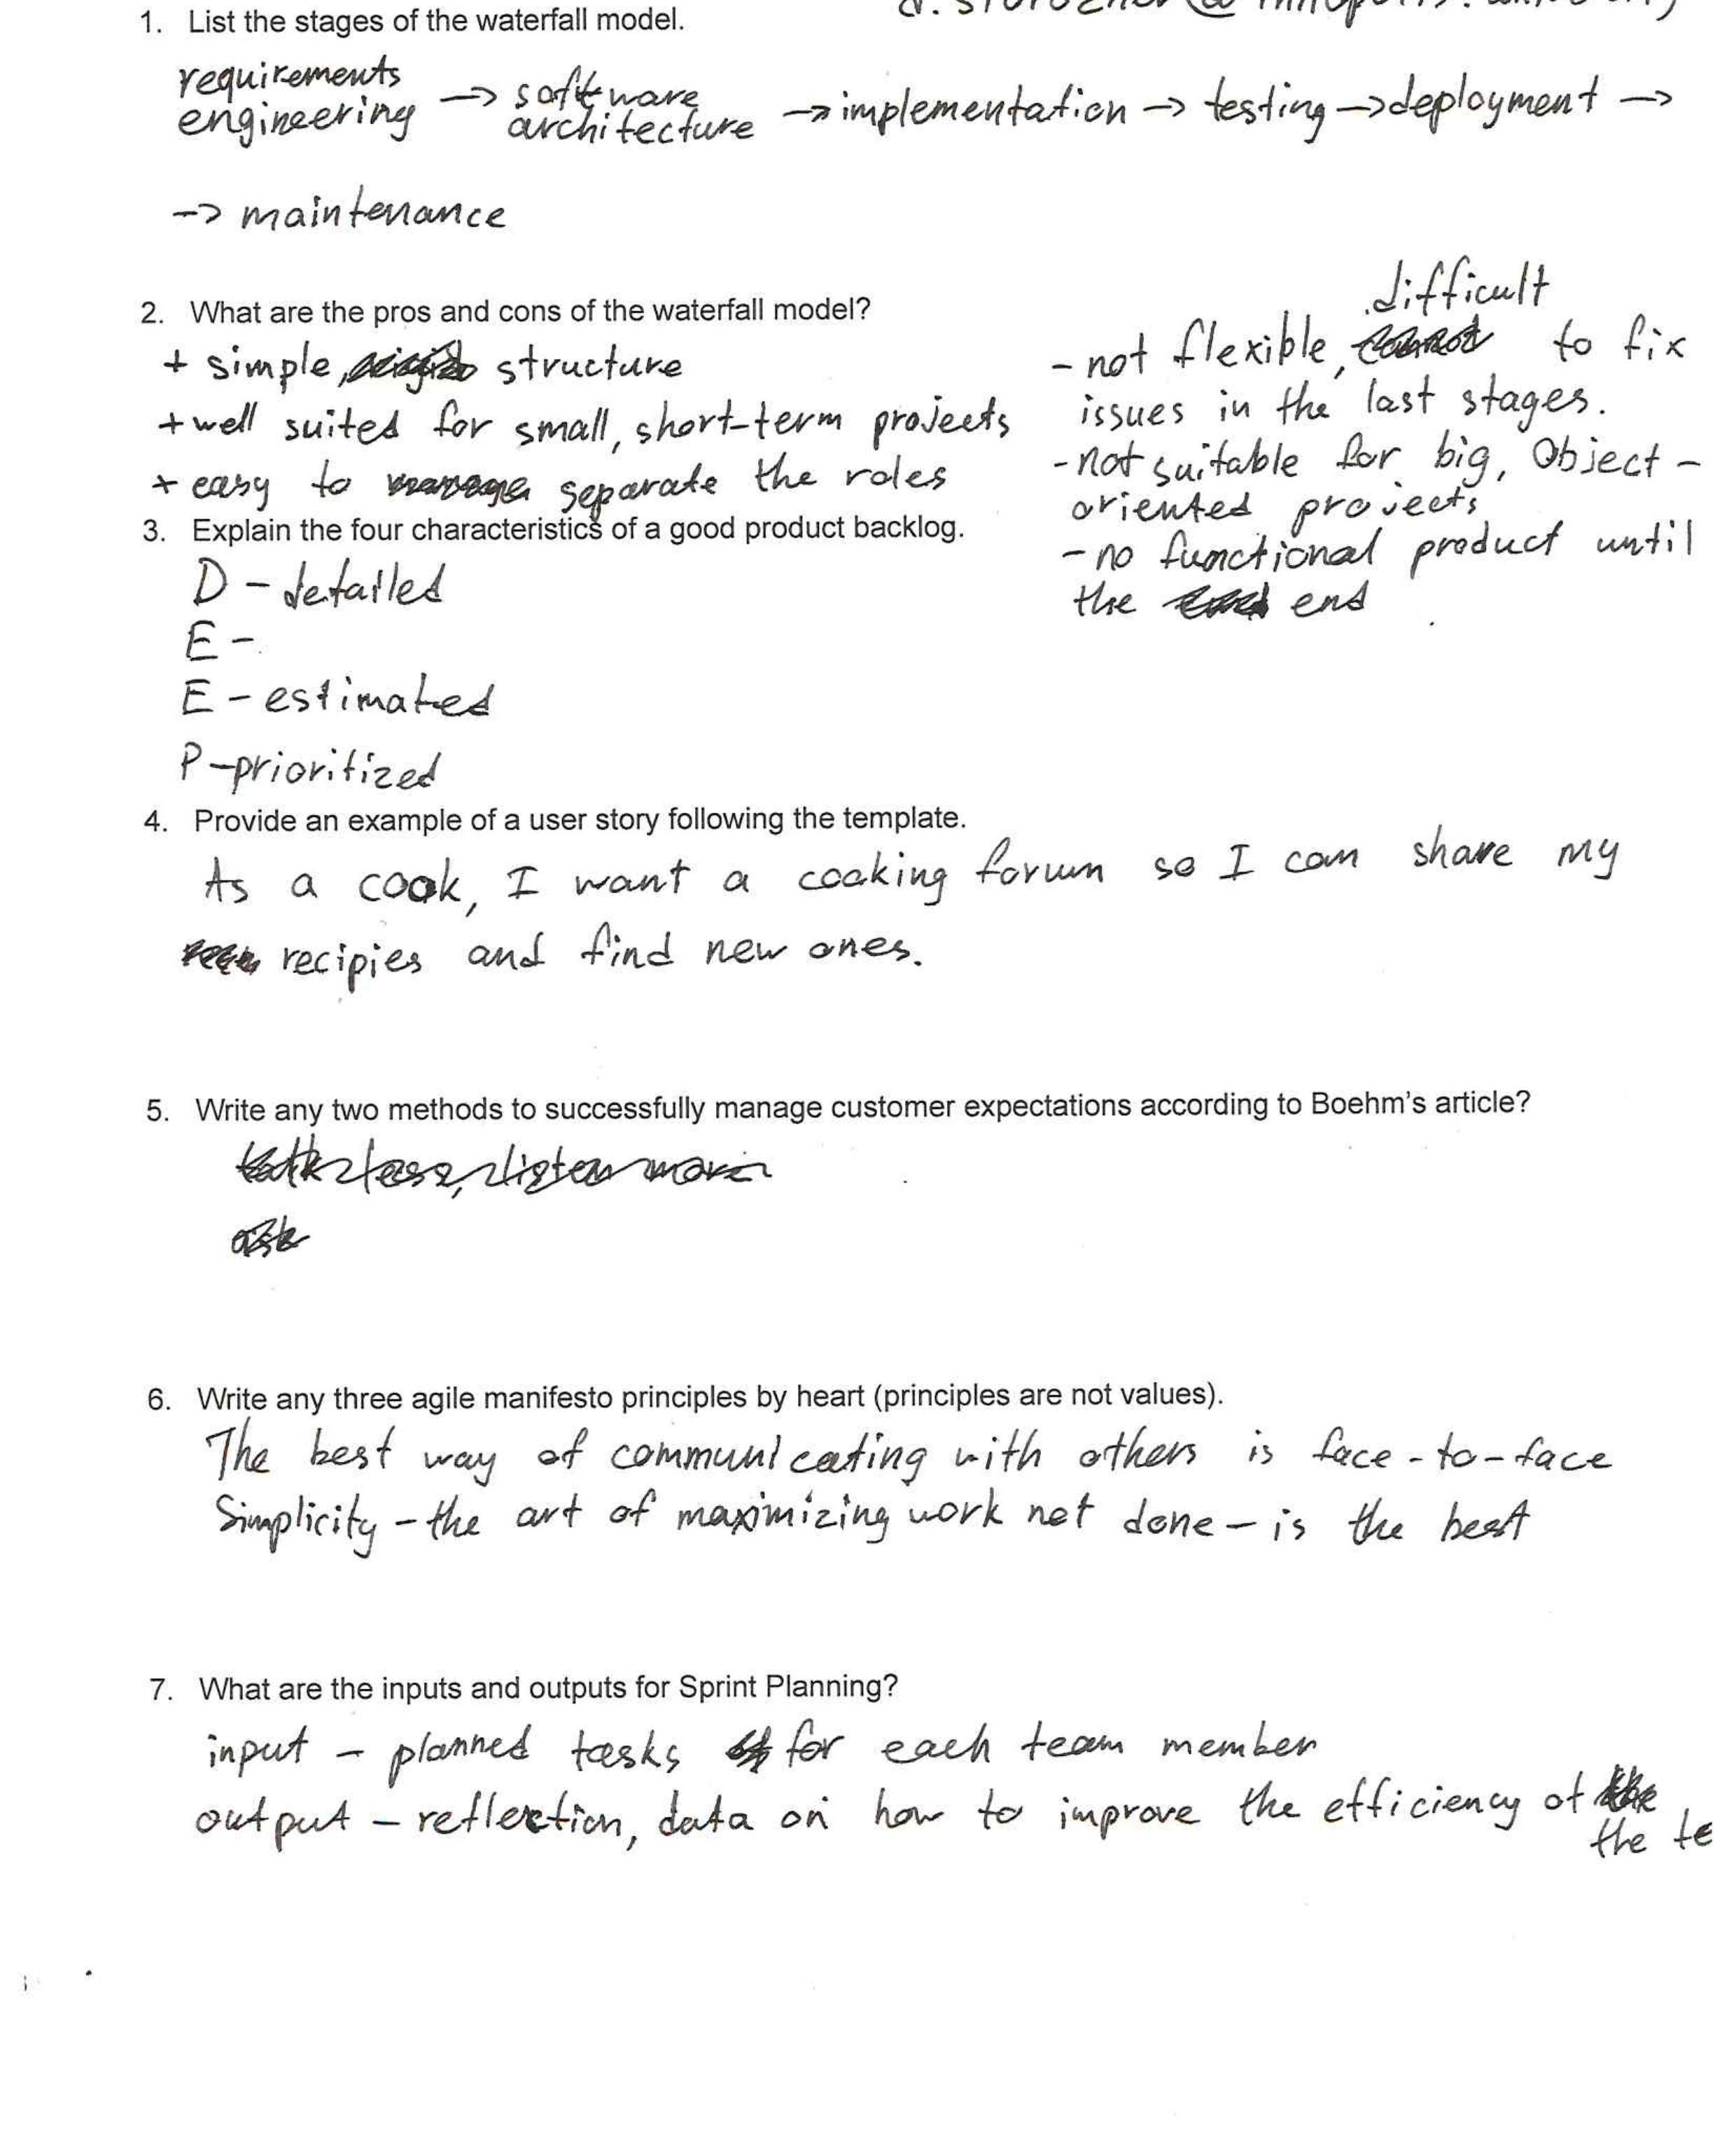 1. List the stages of the waterfall model.
requirements
engineering → software
architecture → implementation → testing → deployment →
→ maintenance
2. What are the pros and cons of the waterfall model?
+ simple, structure
+ well suited for small, short-term projects
+ easy to separate the roles
- not flexible, difficult to fix
issues in the last stages.
- not suitable for big, Object-
oriented projects
- no functional product until
the end
3. Explain the four characteristics of a good product backlog.
D - detailed
E -
E - estimated
P - prioritized
4. Provide an example of a user story following the template.
As a cook, I want a cooking forum so I can share my
recipies and find new ones.
5. Write any two methods to successfully manage customer expectations according to Boehm's article?
talk less, listen more
ask
6. Write any three agile manifesto principles by heart (principles are not values).
The best way of communicating with others is face-to-face
Simplicity - the art of maximizing work not done - is the best
7. What are the inputs and outputs for Sprint Planning?
input - planned tasks for each team member
output - reflection, data on how to improve the efficiency of the
the te